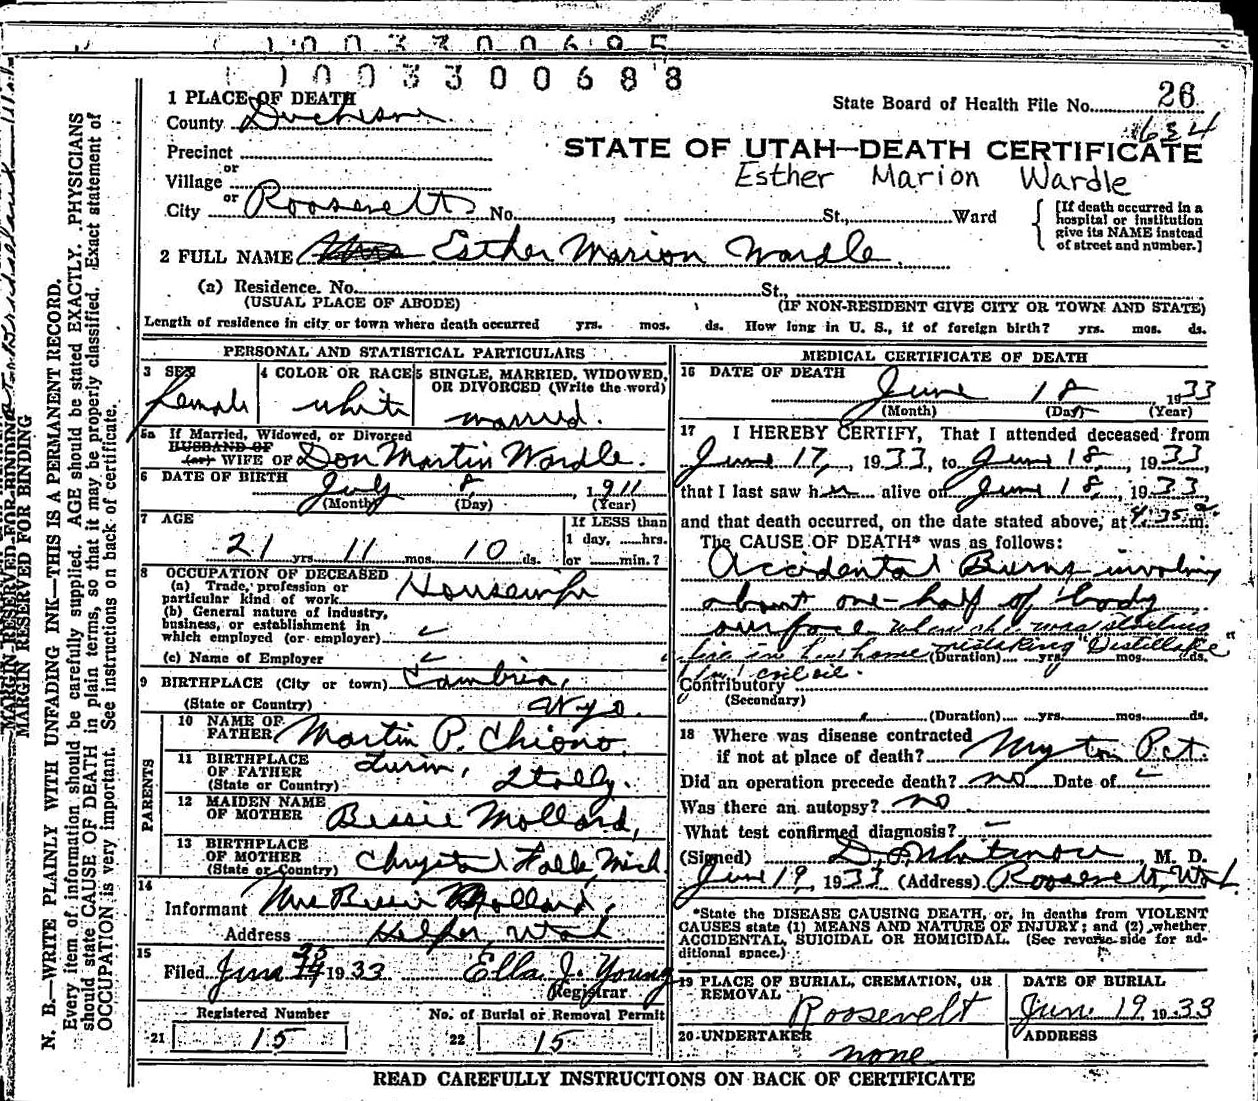 1 0 0 3 3 0 0 6 9 5
1 0 0 3 3 0 0 6 8 8
1 PLACE OF DEATH
County Duchesne
Precinct
or
Village
or
City Roosevelt No. , St., Ward
State Board of Health File No. 26
634
STATE OF UTAH—DEATH CERTIFICATE
Esther Marion Wardle
[If death occurred in a
hospital or institution
give its NAME instead
of street and number.]
2 FULL NAME Mrs Esther Marion Wardle
(a) Residence. No. St.,
(USUAL PLACE OF ABODE) (IF NON-RESIDENT GIVE CITY OR TOWN AND STATE)
Length of residence in city or town where death occurred yrs. mos. ds. How long in U. S., if of foreign birth? yrs. mos. ds.
PERSONAL AND STATISTICAL PARTICULARS
3 SEX 4 COLOR OR RACE 5 SINGLE, MARRIED, WIDOWED,
OR DIVORCED (Write the word)
Female white married.
5a If Married, Widowed, or Divorced
HUSBAND OF
(or) WIFE OF Don Martin Wardle.
6 DATE OF BIRTH July 8, 1911
(Month) (Day) (Year)
7 AGE If LESS than
1 day, hrs.
21 yrs 11 mos. 10 ds. or min.?
8 OCCUPATION OF DECEASED
(a) Trade, profession or
particular kind of work Housewife
(b) General nature of industry,
business, or establishment in
which employed (or employer)
(c) Name of Employer
9 BIRTHPLACE (City or town) Cambria,
(State or Country) Wyo.
PARENTS
10 NAME OF
FATHER Martin P. Chiono.
11 BIRTHPLACE
OF FATHER Turin, Italy.
(State or Country)
12 MAIDEN NAME
OF MOTHER Bessie Mollard,
13 BIRTHPLACE
OF MOTHER Chrystal Falls, Mich
(State or Country)
14
Informant Mrs Bessie Mollard,
Address Helper, Utah
15
Filed June 1933 Ella J. Young
Registrar
Registered Number No. of Burial or Removal Permit
21 15 22 15
MEDICAL CERTIFICATE OF DEATH
16 DATE OF DEATH
June 18 1933
(Month) (Day) (Year)
17 I HEREBY CERTIFY, That I attended deceased from
June 17, 1933, to June 18, 1933,
that I last saw her alive on June 18, 1933,
and that death occurred, on the date stated above, at 4:35 a. m.
The CAUSE OF DEATH* was as follows:
Accidental Burns involving
about one-half of body
surface when she was starting
fire in her home mistaking "Distillate"
(Duration) yrs. mos. ds.
for coil oil.
Contributory
(Secondary)
(Duration) yrs. mos. ds.
18 Where was disease contracted
if not at place of death? Myton Pct.
Did an operation precede death? no Date of
Was there an autopsy? no
What test confirmed diagnosis? —
(Signed) , M. D.
June 19, 1933 (Address) Roosevelt, Utah.
*State the DISEASE CAUSING DEATH, or, in deaths from VIOLENT
CAUSES state (1) MEANS AND NATURE OF INJURY; and (2) whether
ACCIDENTAL, SUICIDAL OR HOMICIDAL. (See reverse side for ad-
ditional space.)
19 PLACE OF BURIAL, CREMATION, OR
REMOVAL
Roosevelt
DATE OF BURIAL
Jun. 19 1933
20 UNDERTAKER
none
ADDRESS
READ CAREFULLY INSTRUCTIONS ON BACK OF CERTIFICATE
MARGIN RESERVED FOR BINDING
MARGIN RESERVED FOR BINDING
N. B.—WRITE PLAINLY WITH UNFADING INK—THIS IS A PERMANENT RECORD.
Every item of information should be carefully supplied. AGE should be stated EXACTLY. PHYSICIANS
should state CAUSE OF DEATH in plain terms, so that it may be properly classified. Exact statement of
OCCUPATION is very important. See instructions on back of certificate.